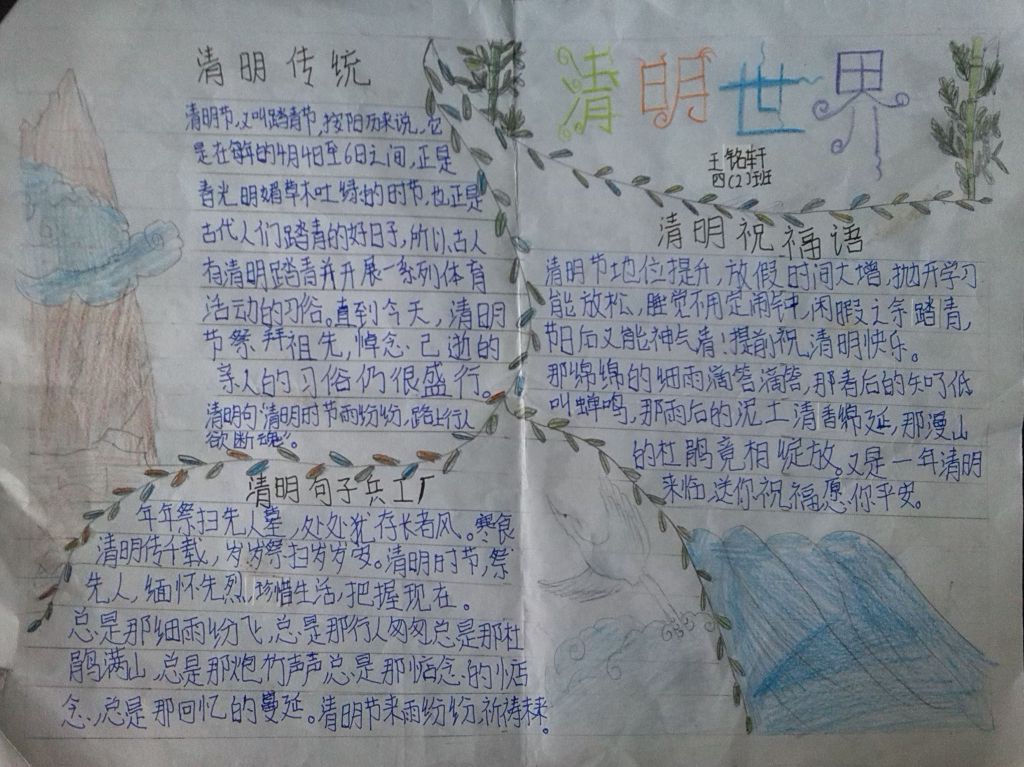 清明世界
王铭轩
四(2)班
清明传统
清明节,又叫踏青节,按阳历来说,它
是在每年的4月4日至6日之间,正是
春光明媚草木吐绿的时节,也正是
古代人们踏青的好日子,所以古人
有清明踏青并开展一系列体育
活动的习俗。直到今天,清明
节祭拜祖先,悼念已逝的
亲人的习俗仍很盛行。
清明句清明时节雨纷纷,路上行人
欲断魂”。
清明祝福语
清明节地位提升,放假时间大增,抛开学习
能放松,睡觉不用定闹钟,闲暇之余踏青,
节日后又能神气清!提前祝,清明快乐。
那绵绵的细雨滴答滴答,那春后的知了低
叫蝉鸣,那雨后的泥土清香绵延,那漫山
的杜鹃竞相绽放。又是一年清明
来临,送你祝福愿你平安。
清明句子兵工厂
年年祭扫先人墓,处处犹存长者风。寒食
清明传千载,岁岁祭扫岁岁安。清明时节,祭
先人,缅怀先烈,珍惜生活,把握现在。
总是那细雨纷飞,总是那行人匆匆总是那杜
鹃满山,总是那炮竹声声总是那惦念的惦
念,总是那回忆的蔓延。清明节来雨纷纷,祈祷未来。